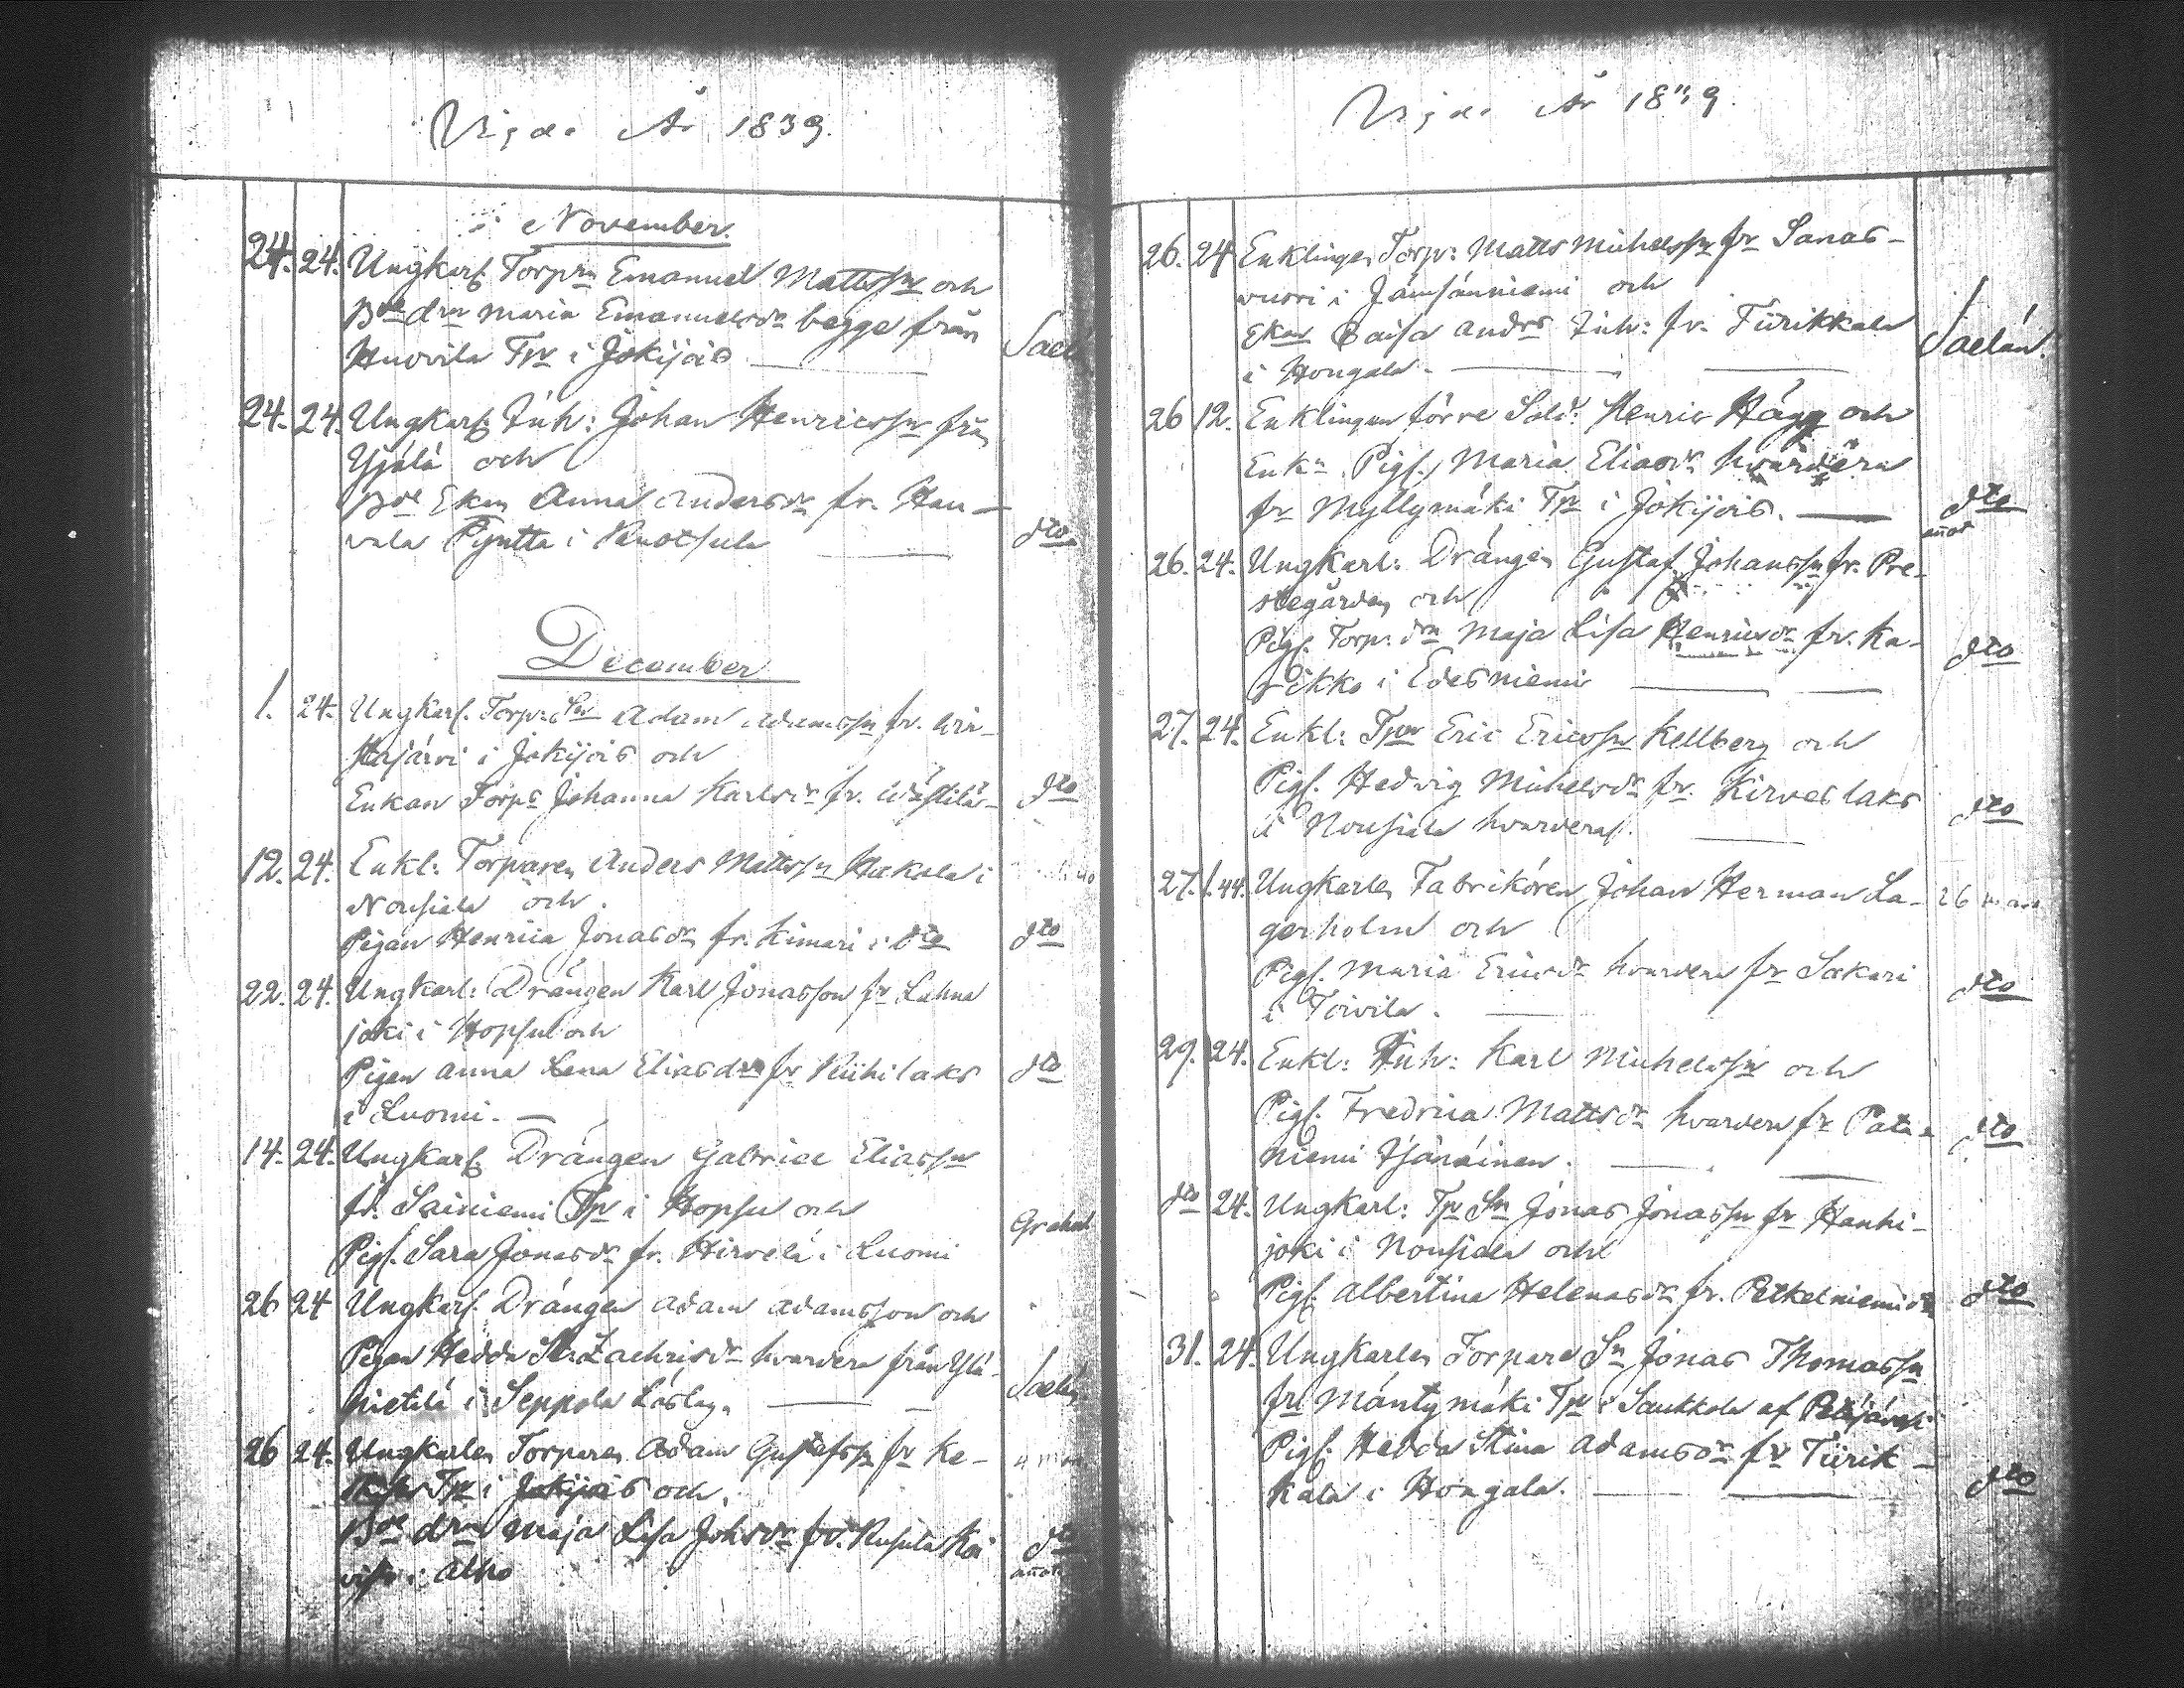 Vigde År 1839.
November.
24. 24. Ungkarl. Torpn Emanuel Mattssn och
Bde drn Maria Emanuelsdr begge från
Huovila Tp i Jokijois Sael
24. 24. Ungkarl. Inh: Johan Henricssn från
Yjälä och
Bde Ekan Anna Andersdr fr. Hau-
vala Pyntta i Ruotsula dto
December
1. 24. Ungkarl. Torp: Sn Adam Adamssn fr. Wir-
stajärvi i Jokijois och
Enkan Torps Johanna Karlsdr fr. dto
12. 24. Enkl: Torparen Anders Mattssn Hakala i
Nousiala och
Pigan Henrica Jonasdr fr. Kimari i dto dto
22. 24. Ungkarl: Drängen Karl Jonasson fr Lahna
joki i Hopsu och
Pigan Anna Lena Eliasdr fr Riihilaks dto
i Luomi.
14. 24. Ungkarl. Drängen Gabriel Eliassn
fr. Sainiemi Tp i Hopsu och
Pigf. Sara Jonasdr fr. Hirvelä i Luomi
26 24 Ungkarl. Drängen Adam Adamsson och
Pigan Hedda Zachrisdr hvardera från Ylä-
nietilä i Seppola Läslag. Saelän
26 24. Ungkarlen Torparen Adam Gustafssn fr Ke-
Tp i Jokijois och
Bde drn Maja Lisa Johsdr fr. Koi
Alho dto
Vigde År 1839.
26. 24 Enklingen Torp: Matts Michelssn fr Sanas-
vuori i Jämsänniemi och
Ekan Caisa Andrs Inh: fr. Tiirikkala
i Hongala. Saelän.
26 12. Enklingen förre Sold: Henric Hägg och
Enkn Pigf. Maria Eliasdr hvardera
fr Myllymäki Tp i Jokijois. dto
26. 24. Ungkarl: Drängen Gustaf Johanssn fr. Pre-
stegården och
Pigf. Torp: drn Maja Lisa Henricsdr fr. Ka-
rikko i Edesniemi dto
27. 24. Enkl: Tpn Eric Ericssn Kellberg och
Pigf. Hedvig Michelsdr fr. Kirveslaks
i Nousiala hvardera. dto
27. 1.44. Ungkarlen Fabrikören Johan Herman La-
gerholm och
Pigf. Maria Ericsdr hvardera fr Sakari
i Toivila. dto
29. 24. Enkl: Inh: Karl Michelssn och
Pigf. Fredrica Mattsdr hvardera fr Pata-
niemi Ijänäinen. dto
dto 24. Ungkarl: Tp Sn Jonas Jonassn fr Hanhi-
joki i Nousiala och
Pigf. Albertina Helenasdr fr. Petkelniemi dto
31. 24. Ungkarlen Torpare Sn Jonas Thomassn
fr Mäntymäki Tp i Saukkola af Petäjävesi
Pigf. Hedda Stina Adamsdr fr Tiirik-
kala i Hongala. dto